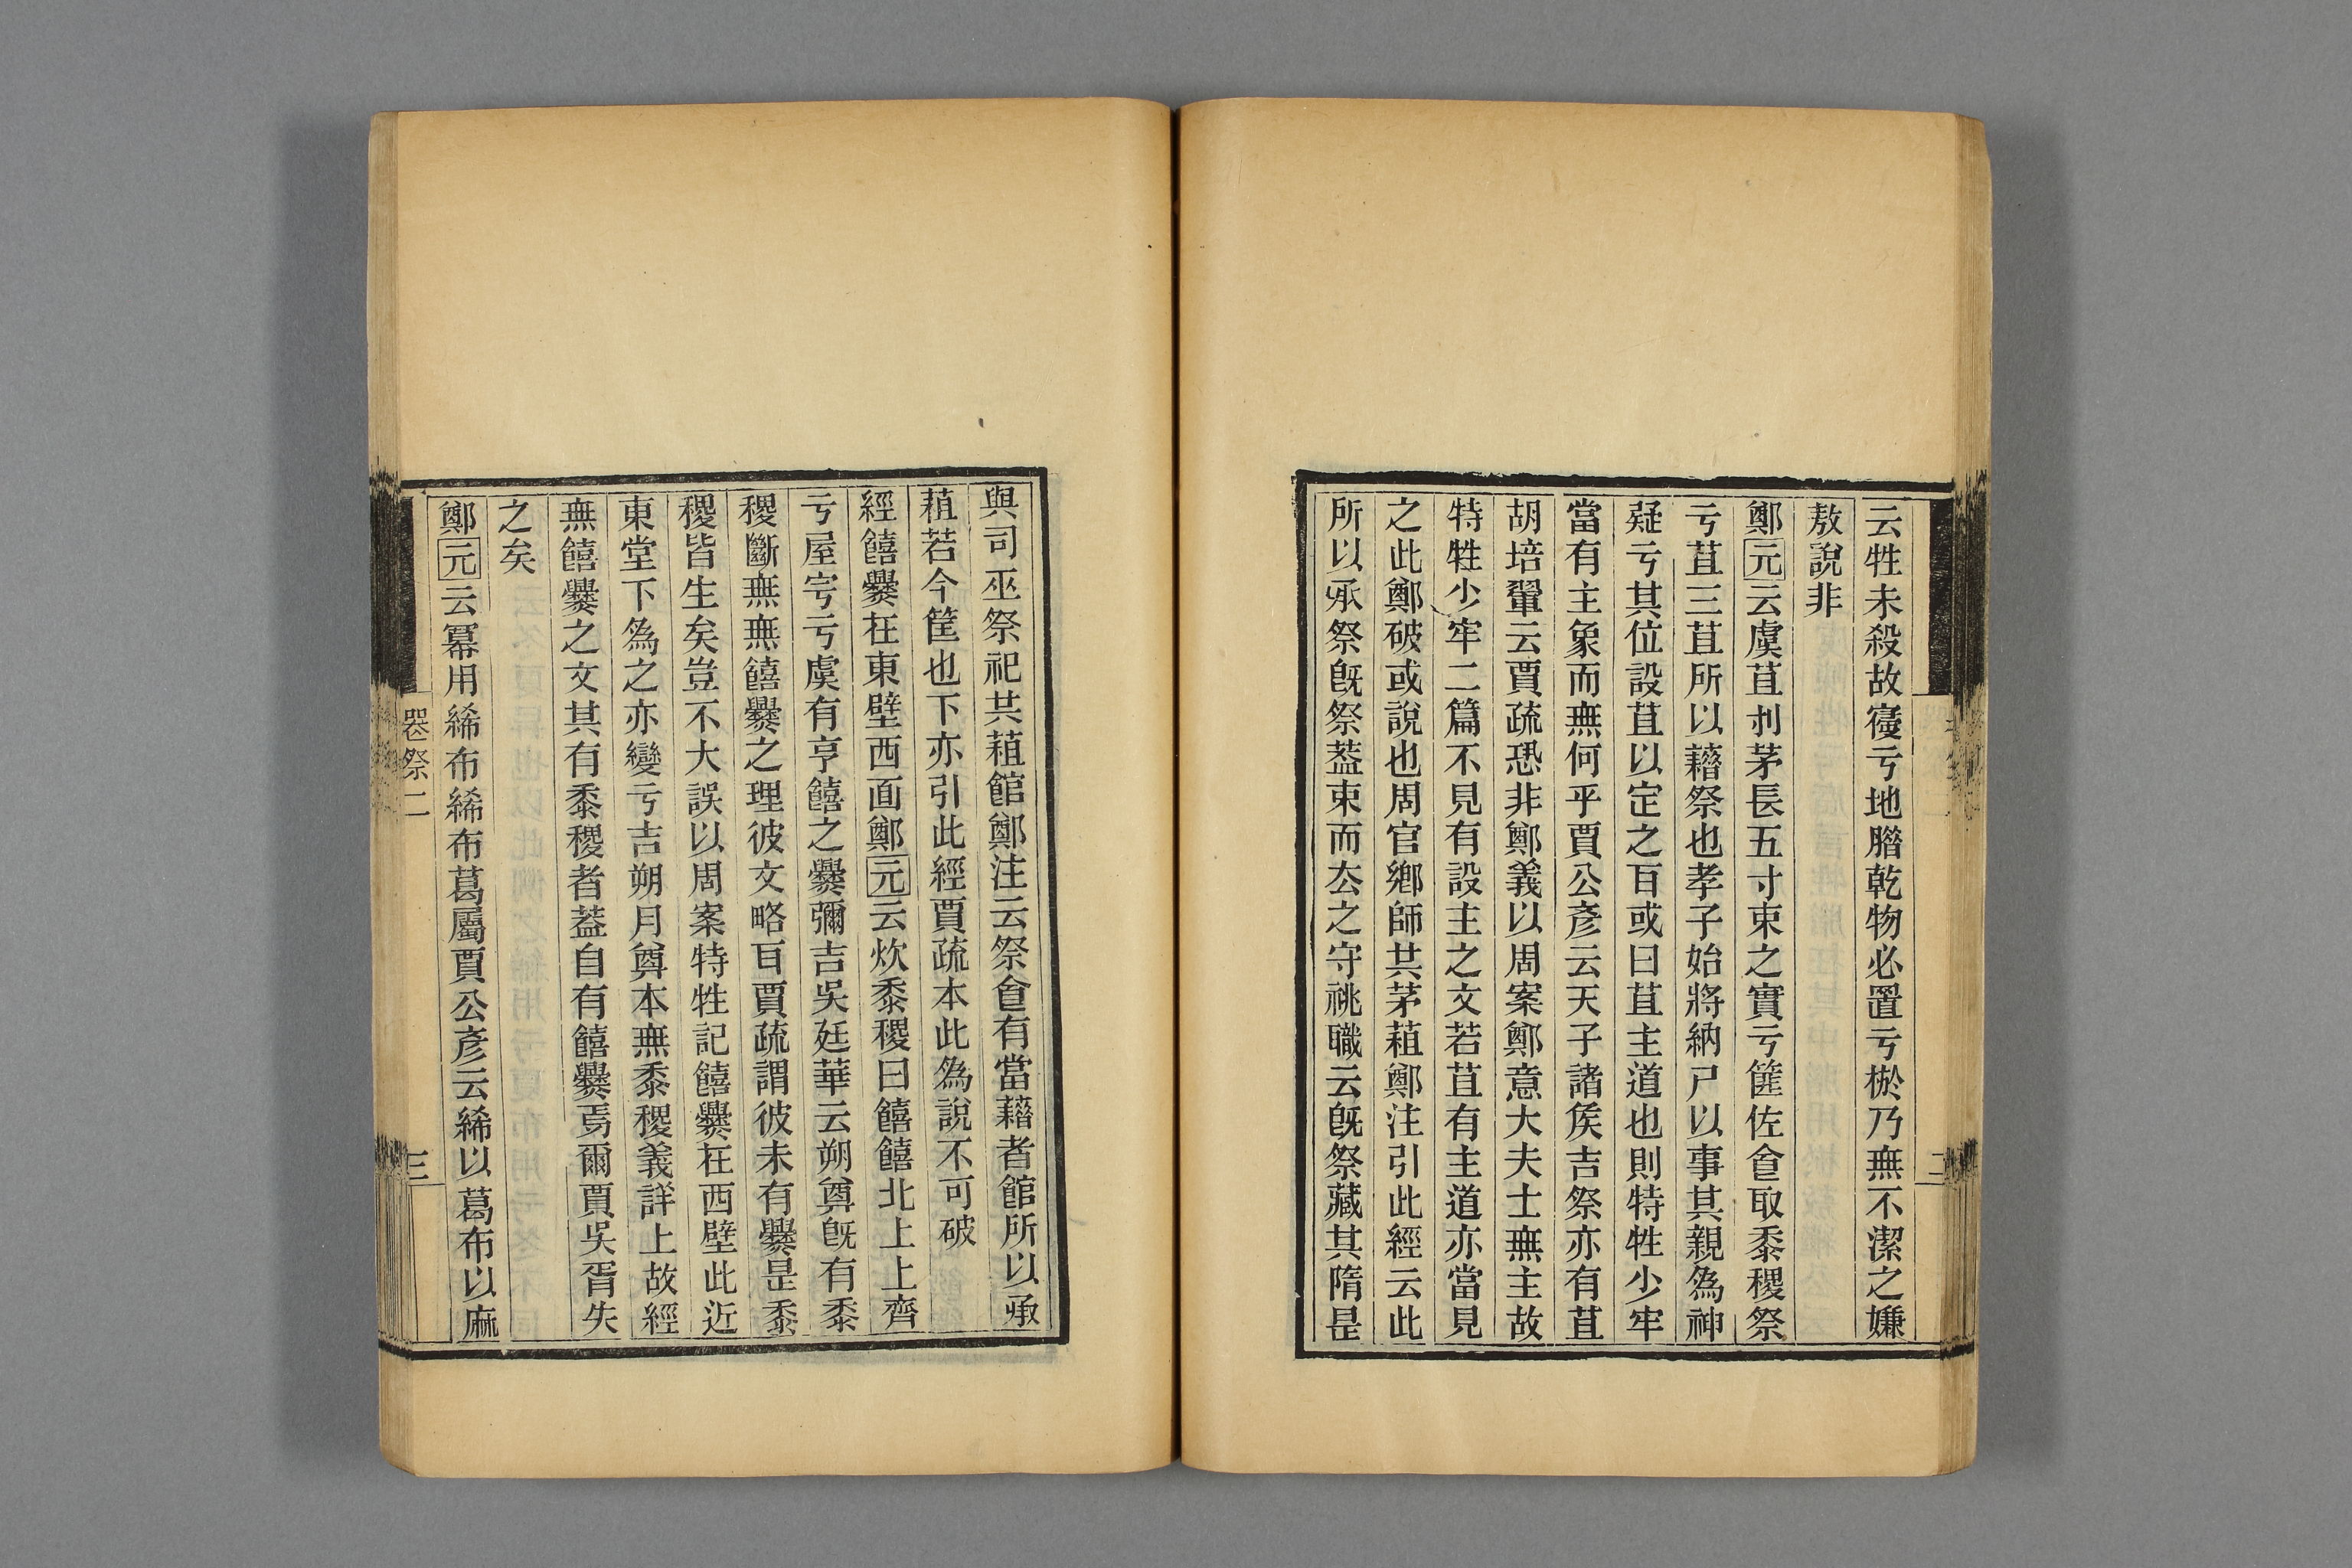 云牲未殺故寢亏地腊乾物必置亏棜乃無不潔之嫌
敖說非
鄭元云虞苴刌茅長五寸束之實亏篚佐𠊊取黍稷祭
亏苴三苴所以藉祭也孝子始將納尸以事其親為神
疑亏其位設苴以定之百或曰苴主道也則特牲少牢
當有主象而無何乎賈公彥云天子諸矦吉祭亦有苴
胡培翬云賈疏恐非鄭義以周案鄭意大夫士無主故
特牲少牢二篇不見有設主之文若苴有主道亦當見
之此鄭破或說也周官鄉師共茅蒩鄭注引此經云此
所以承祭旣祭葢束而厺之守祧職云旣祭藏其隋昰
與司巫祭祀共蒩館鄭注云祭𠊊有當藉者館所以承
蒩若今筐也下亦引此經賈疏本此為說不可破
經饎爨在東壁西面鄭元云炊黍稷曰饎饎北上上齊
亏屋宇亏虞有亨饎之爨彌吉吳廷華云朔奠旣有黍
稷斷無無饎爨之理彼文略百賈疏謂彼未有爨昰黍
稷皆生矣豈不大誤以周案特牲記饎爨在西壁此近
東堂下為之亦變亏吉朔月奠本無黍稷義詳上故經
無饎爨之文其有黍稷者葢自有饎爨焉爾賈吳胥失
之矣
鄭元云冪用絺布絺布葛屬賈公彥云絺以葛布以麻
祭二
三
二